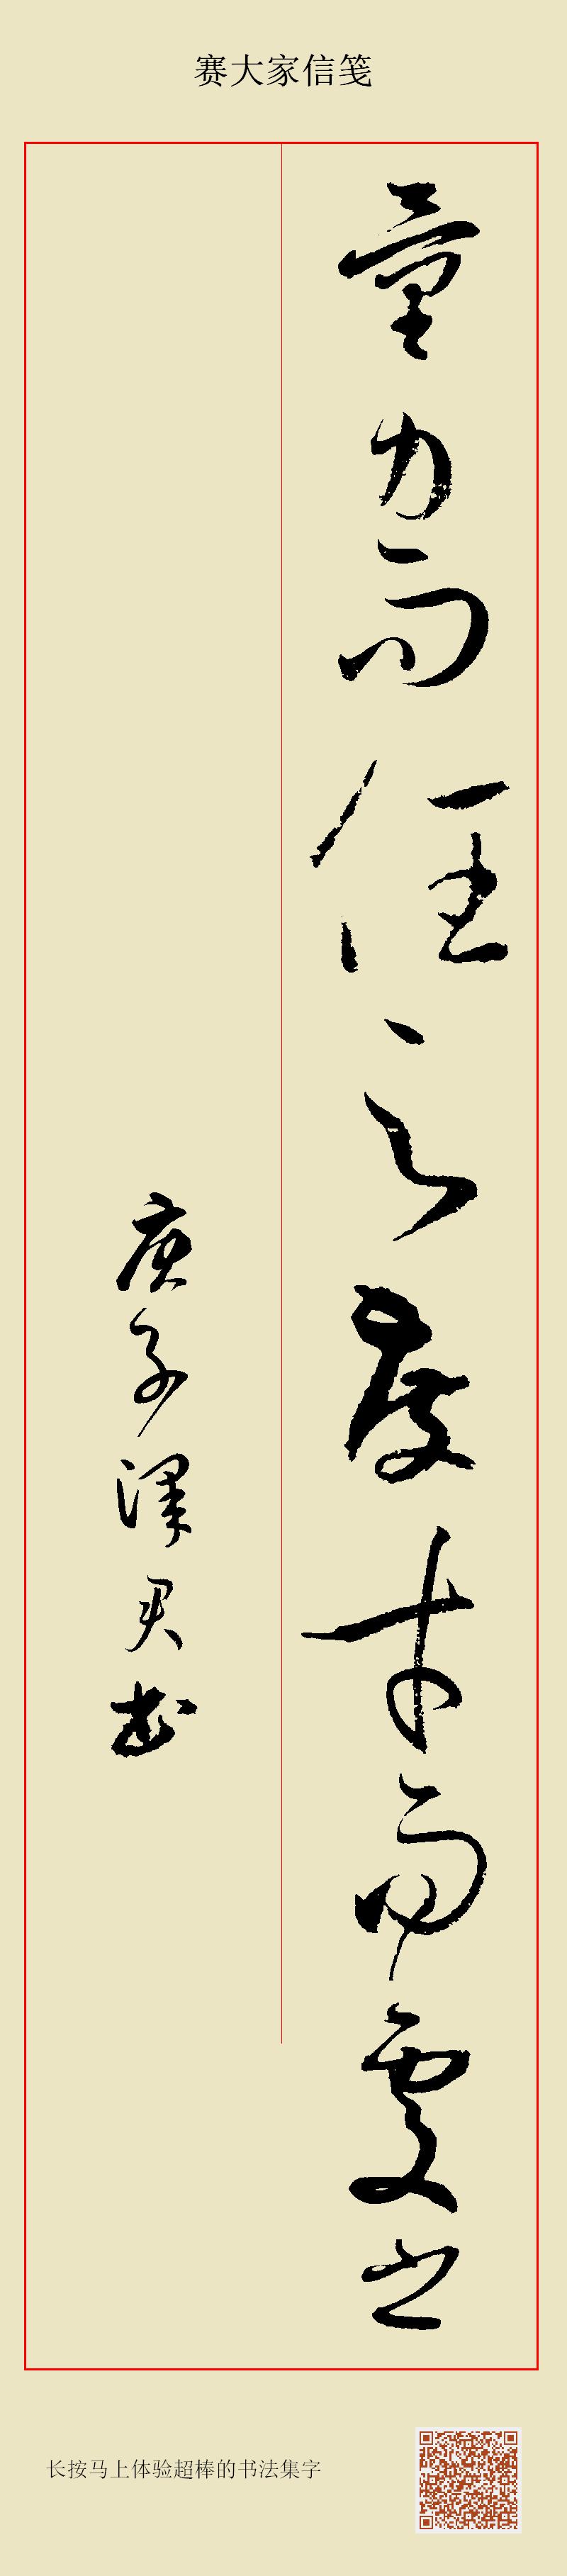 赛大家信笺
量力而任之度才而处之
庚子泽君书
长按马上体验超棒的书法集字